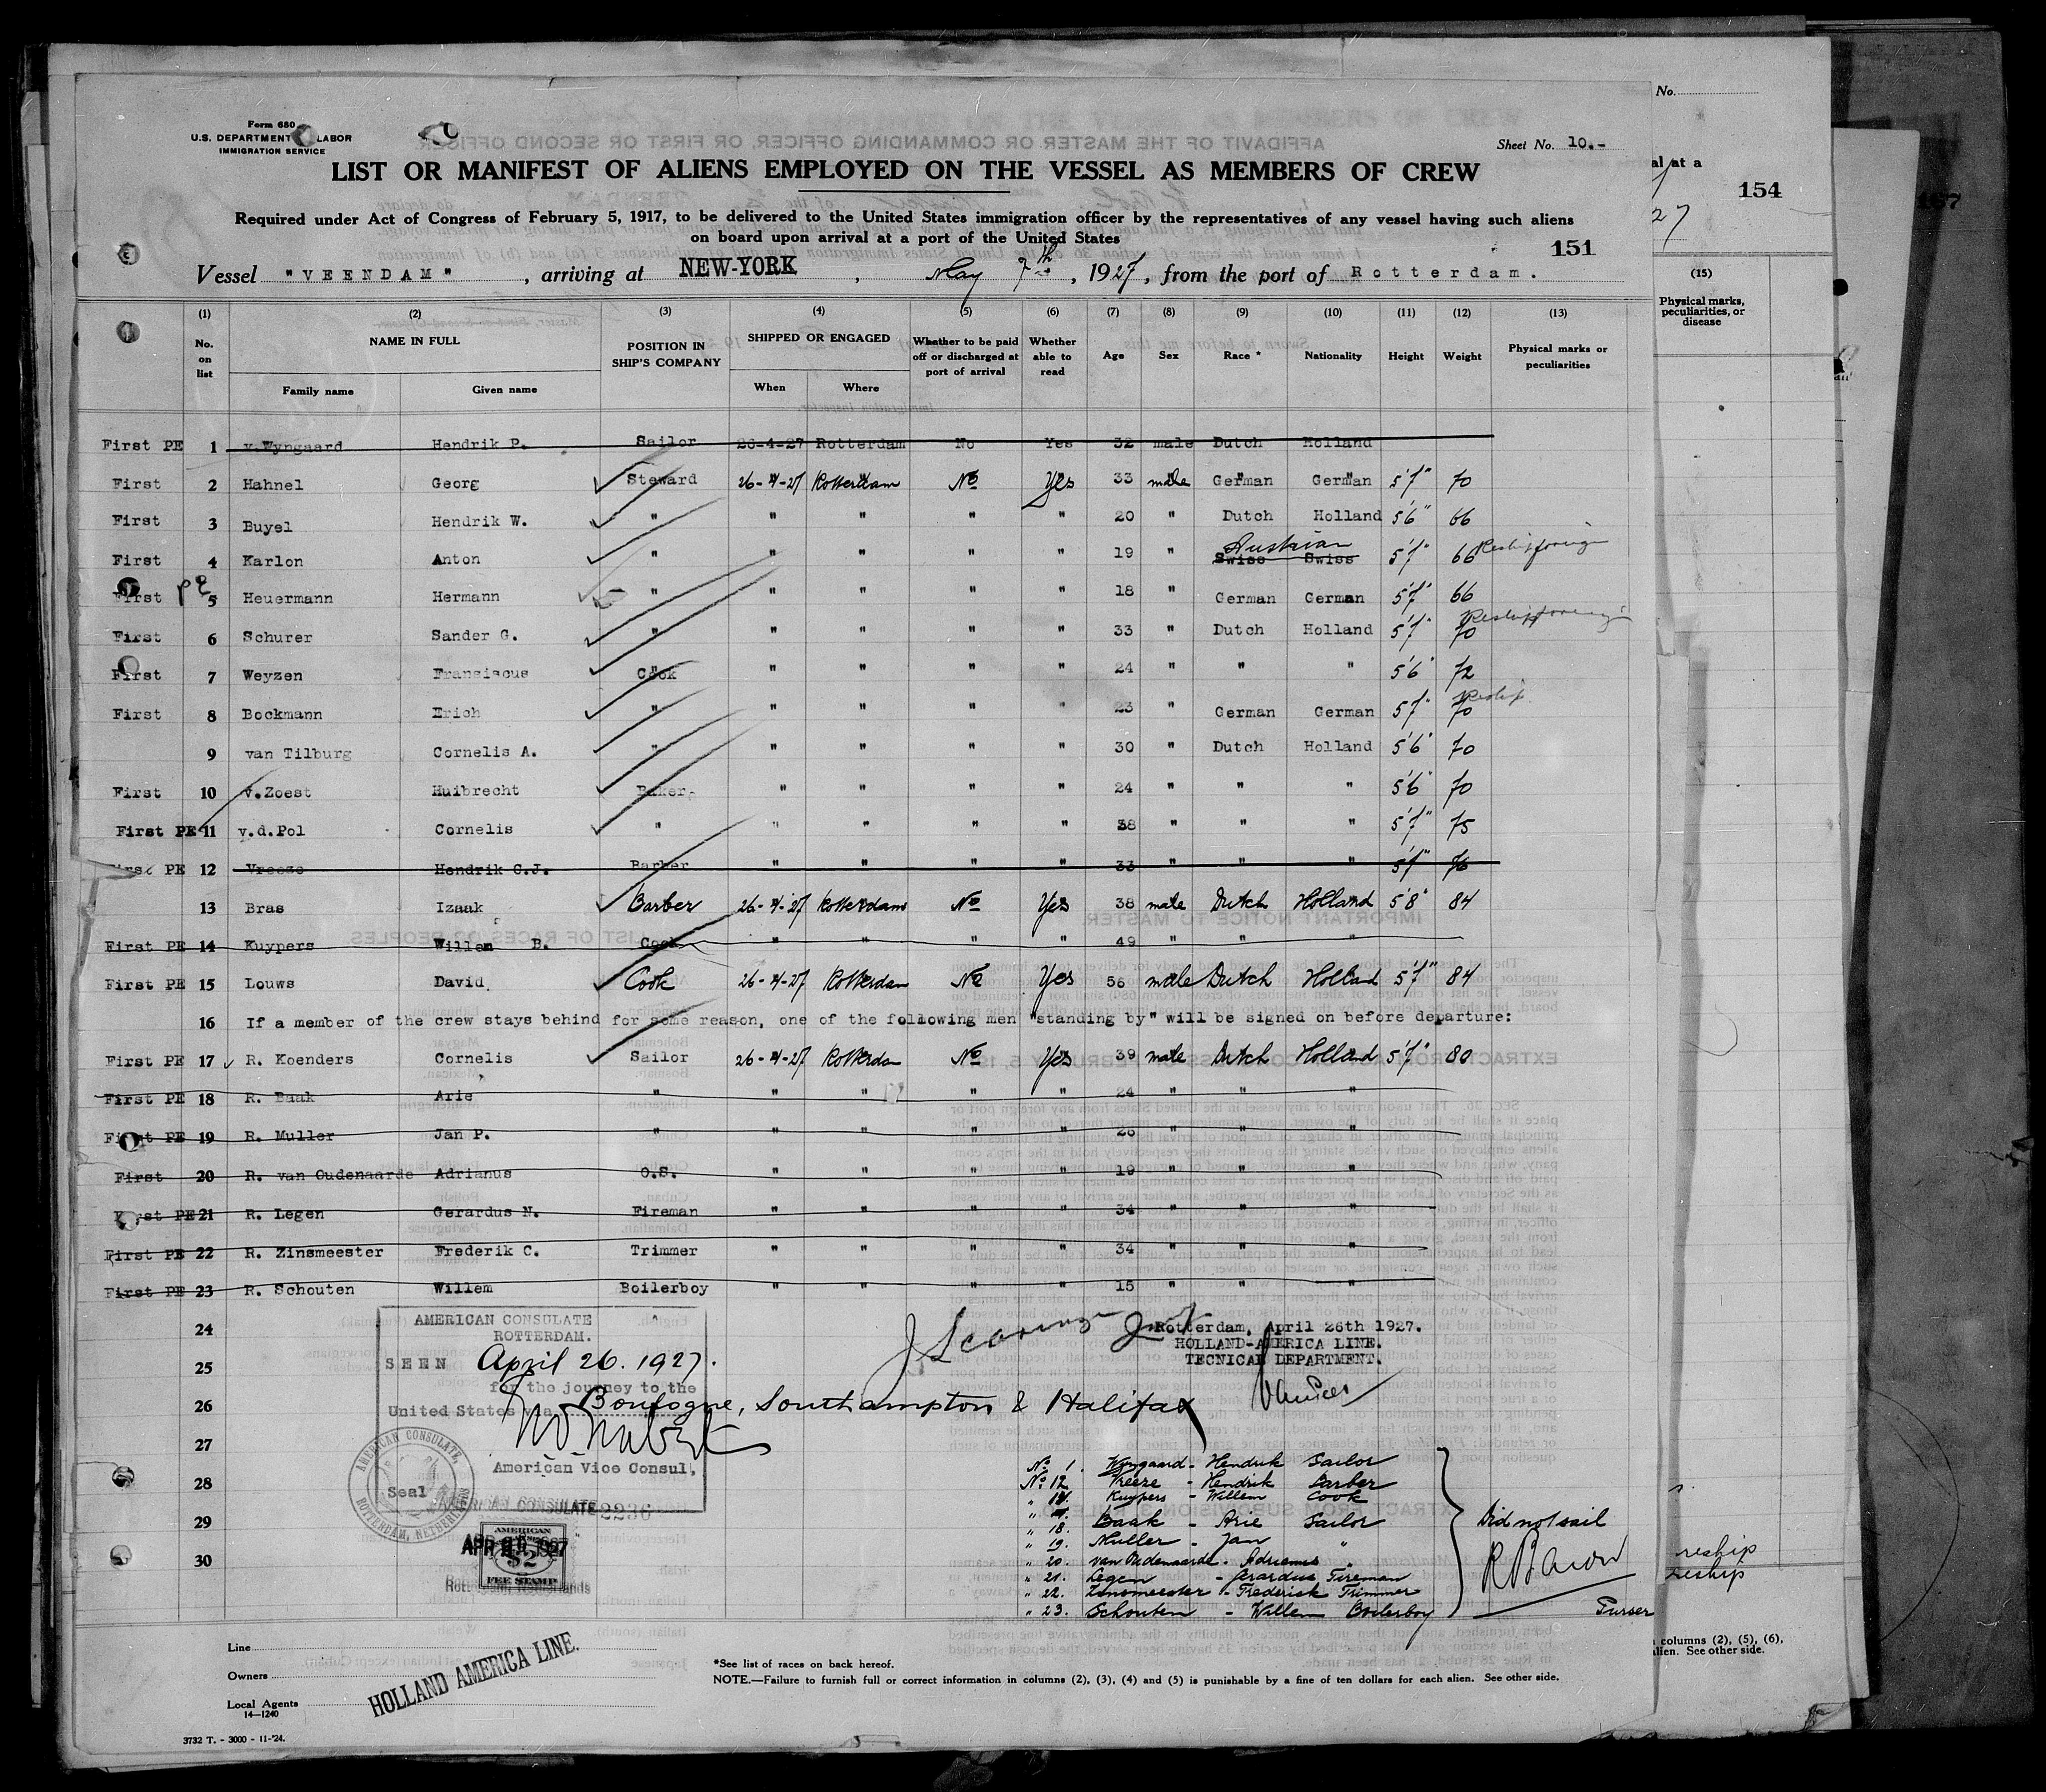 Form 680
U.S. DEPARTMENT LABOR
IMMIGRATION SERVICE
Sheet No. 10.-
LIST OR MANIFEST OF ALIENS EMPLOYED ON THE VESSEL AS MEMBERS OF CREW
Required under Act of Congress of February 5, 1917, to be delivered to the United States immigration officer by the representatives of any vessel having such aliens
on board upon arrival at a port of the United States
151
Vessel "VEENDAM", arriving at NEW-YORK, May 7th, 1927, from the port of Rotterdam.
(1) (2) (3) (4) (5) (6) (7) (8) (9) (10) (11) (12) (13)
No. on list NAME IN FULL Family name Given name POSITION IN SHIP'S COMPANY SHIPPED OR ENGAGED When Where Whether to be paid off or discharged at port of arrival Whether able to read Age Sex Race * Nationality Height Weight Physical marks or peculiarities
First PE 1 v.Wyngaard Hendrik P. Sailor 26-4-27 Rotterdam No Yes 32 male Dutch Holland
First 2 Hahnel Georg Steward 26-4-27 Rotterdam No Yes 33 male German German 5'7" 70
First 3 Buyel Hendrik W. " " " " " 20 " Dutch Holland 5'6" 66
First 4 Karlon Anton " " " " " 19 " Swiss Swiss Austrian 5'7" 66 Reship foreign
First PE 5 Heuermann Hermann " " " " " 18 " German German 5'7" 66
First 6 Schurer Sander G. " " " " " 33 " Dutch Holland 5'7" 70 Reship foreign
First 7 Weyzen Fransiscus Cook " " " " 24 " " " 5'6" 72
First 8 Bockmann Erich " " " " " 23 " German German 5'7" 70 Reship
9 van Tilburg Cornelis A. " " " " " 30 " Dutch Holland 5'6" 70
First 10 v.Zoest Huibrecht Baker " " " " 24 " " " 5'6" 70
First PE 11 v.d.Pol Cornelis " " " " " 38 " " " 5'7" 75
First PE 12 Vreeze Hendrik C.J. Barber " " " " 33 " " " 5'7" 76
13 Bras Izaak Barber 26-4-27 Rotterdam No Yes 38 male Dutch Holland 5'8" 84
First PE 14 Kuypers Willem B. Cook " " " " 49 " " "
First PE 15 Louws David Cook 26-4-27 Rotterdam No Yes 56 male Dutch Holland 5'7" 84
16 If a member of the crew stays behind for some reason, one of the following men "standing by" will be signed on before departure:
First PE 17 R. Koenders Cornelis Sailor 26-4-27 Rotterdam No Yes 39 male Dutch Holland 5'7" 80
First PE 18 R. Baak Arie " " " " " 24 " " "
First PE 19 R. Muller Jan P. " " " " " 26 " " "
First 20 R. van Oudenaarde Adrianus O.S. " " " " 19 " " "
First PE 21 R. Legen Gerardus N. Fireman " " " " 34 " " "
First PE 22 R. Zinsmeester Frederik C. Trimmer " " " " 34 " " "
First PE 23 R. Schouten Willem Boilerboy " " " " 15 " " "
24
25
26
27
28
29
30
AMERICAN CONSULATE
ROTTERDAM.
SEEN April 26. 1927.
for the journey to the
United States via Boulogne, Southampton & Halifax
American Vice Consul,
Seal
AMERICAN CONSULATE, ROTTERDAM, NETHERLANDS
AMERICAN CONSULATE 2236
AMERICAN
$2
FEE STAMP
Rotterdam, April 26th 1927.
HOLLAND-AMERICA LINE.
TECNICAL DEPARTMENT.
No 1. Wyngaard - Hendrik Sailor
No 12 Vreeze - Hendrik Barber
" 14. Kuypers - Willem Cook
" 18. Baak - Arie Sailor
" 19. Muller - Jan "
" 20. van Oudenaarde - Adrianus "
" 21. Legen - Gerardus Fireman
" 22. Zinsmeester - Frederick Trimmer
" 23. Schouten - Willem Boilerboy
Did not sail
Purser
Line
Owners
Local Agents
HOLLAND AMERICA LINE.
14-1240
*See list of races on back hereof.
NOTE.—Failure to furnish full or correct information in columns (2), (3), (4) and (5) is punishable by a fine of ten dollars for each alien. See other side.
3732 T. - 3000 - 11-'24.
No.
al at a
154
27
(15)
Physical marks,
peculiarities, or
disease
reship
reship
columns (2), (5), (6),
alien. See other side.
167